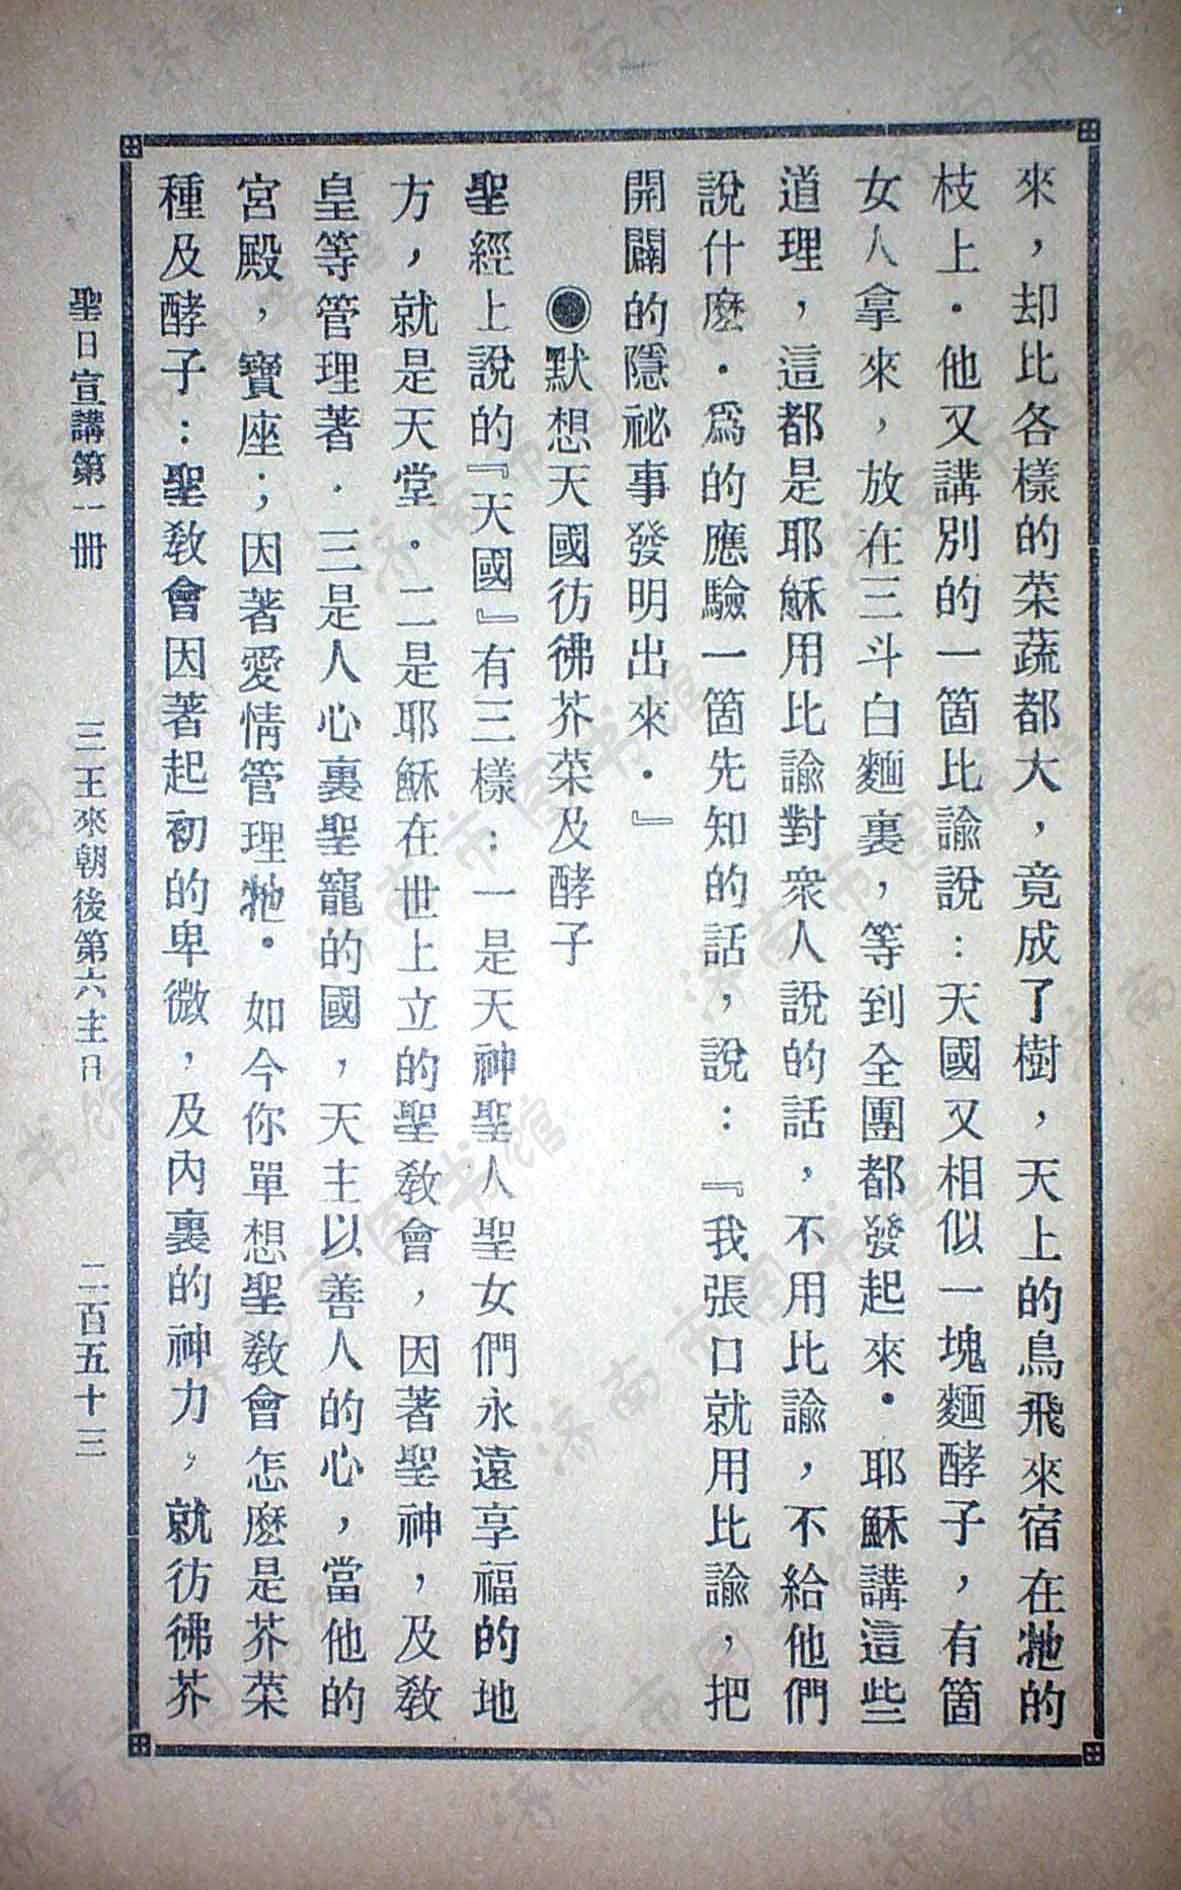 來，却比各樣的菜蔬都大，竟成了樹，天上的鳥飛來宿在牠的
枝上．他又講別的一箇比諭說：天國又相似一塊麵酵子，有箇
女人拿來，放在三斗白麵裏，等到全團都發起來．耶穌講這些
道理，這都是耶穌用比諭對衆人說的話，不用比諭，不給他們
說什麽．爲的應驗一箇先知的話，說：『我張口就用比諭，把
開闢的隱祕事發明出來．』
◉默想天國彷彿芥菜及酵子
聖經上說的『天國』有三樣：一是天神聖人聖女們永遠享福的地
方，就是天堂．二是耶穌在世上立的聖敎會，因著聖神，及敎
皇等管理著．三是人心裏聖寵的國，天主以善人的心，當他的
宮殿，寶座；因著愛情管理牠．如今你單想聖敎會怎麽是芥菜
種及酵子：聖敎會因著起初的卑微，及內裏的神力，就彷彿芥
聖日宣講第一册　三王來朝後第六主日　二百五十三
济南市图书馆